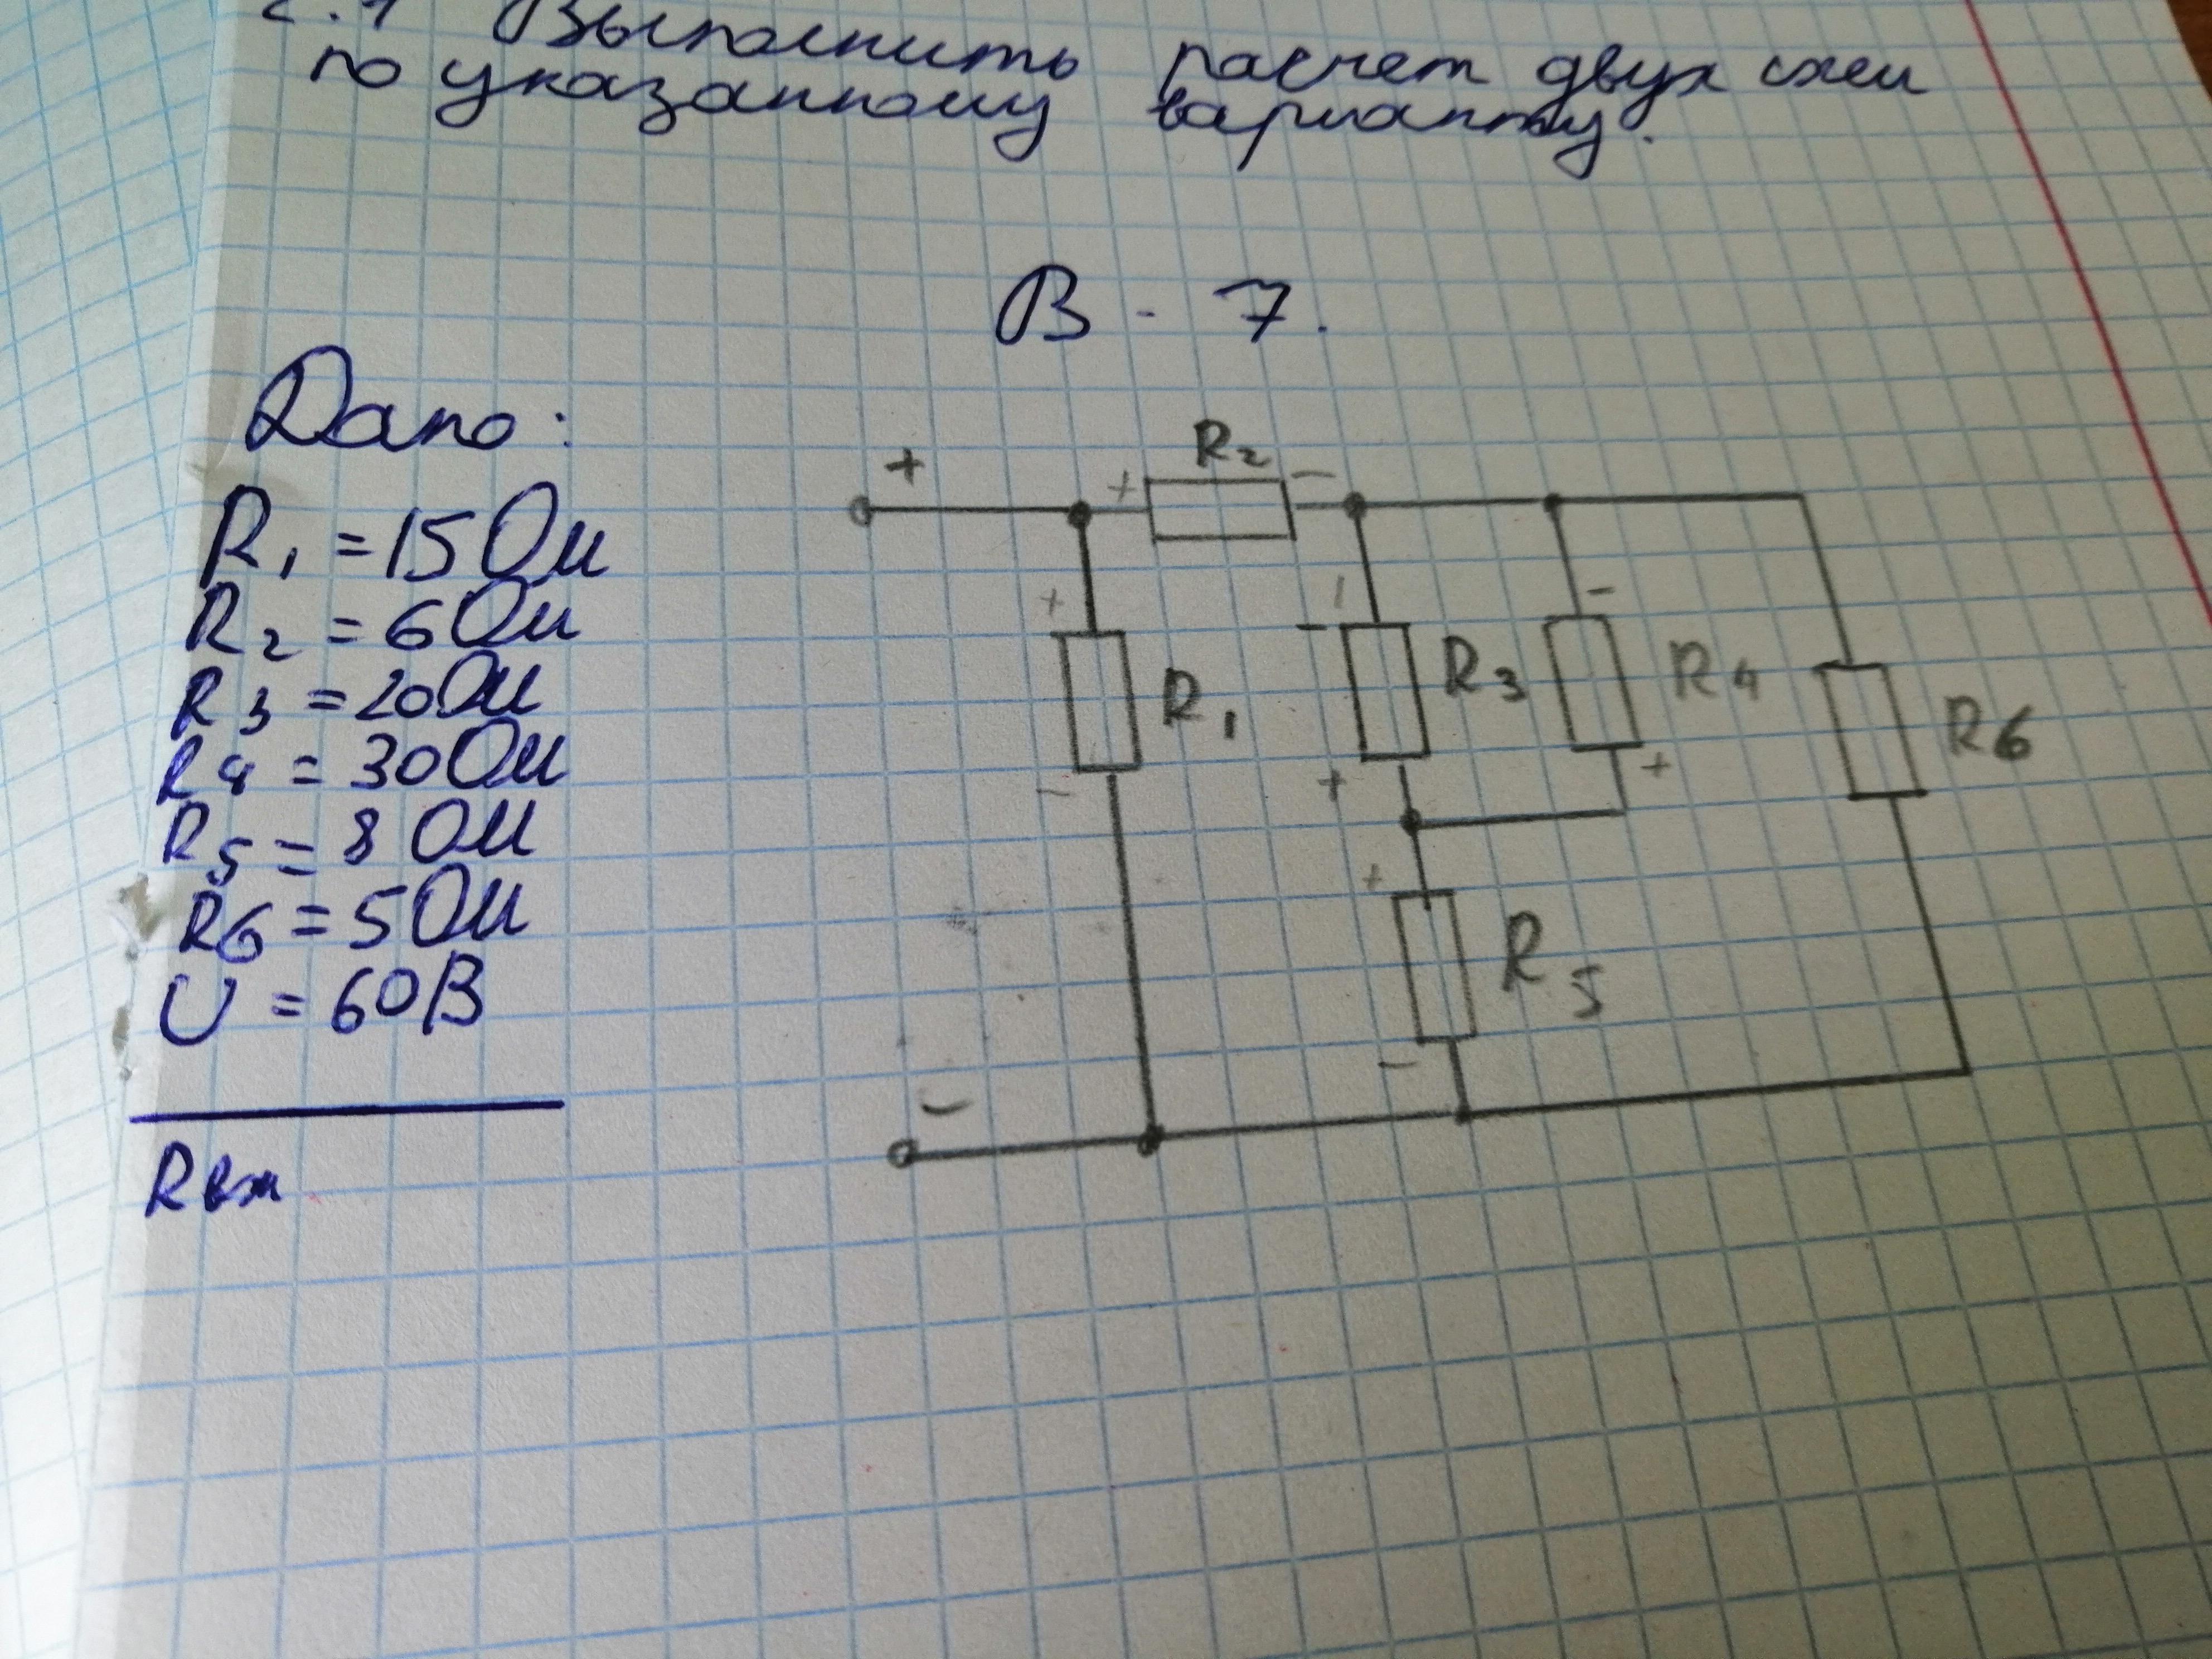 2.1 Выполнить расчет двух схем
по указанному варианту.
В - 7.
Дано:
R1 = 15 Ом
R2 = 6 Ом
R3 = 20 Ом
R4 = 30 Ом
R5 = 8 Ом
R6 = 5 Ом
U = 60 В
Rвх
+
+ R2 -
+ R1 -
- R3 +
- R4 +
R6
+ R5 -
-